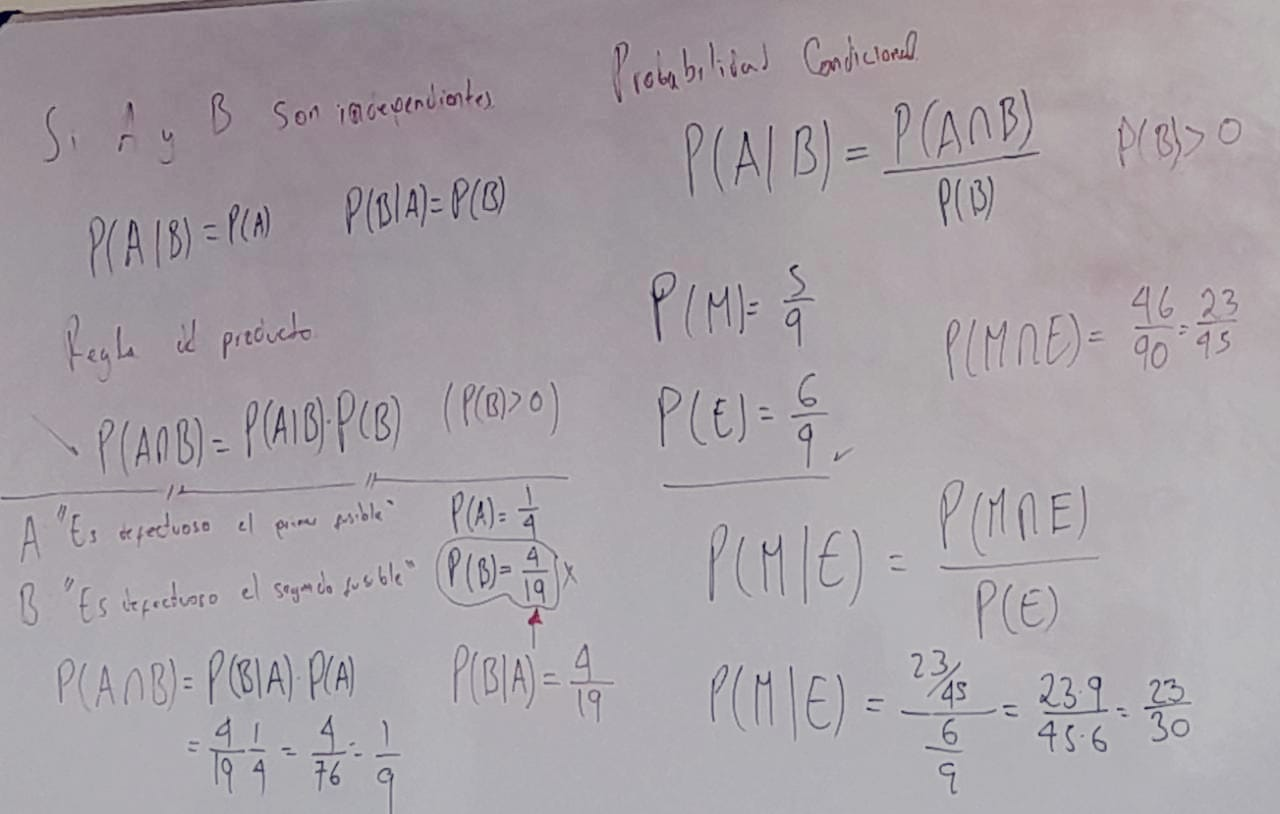 Si A y B son independientes
P(A|B) = P(A) P(B|A) = P(B)
Regla del producto
P(A∩B) = P(A|B)·P(B) (P(B)>0)
A "Es defectuoso el primer fusible" P(A) = 1/4
B "Es defectuoso el segundo fusible" P(B) = 4/19 x
P(A∩B) = P(B|A)·P(A) P(B|A) = 4/19
= 4/19 1/4 = 4/76 = 1/9
Probabilidad Condicional
P(A|B) = P(A∩B)/P(B) P(B)>0
P(M) = 5/9
P(M∩E) = 46/90 = 23/45
P(E) = 6/9
P(M|E) = P(M∩E)/P(E)
P(M|E) = (23/45)/(6/9) = 23·9/45·6 = 23/30